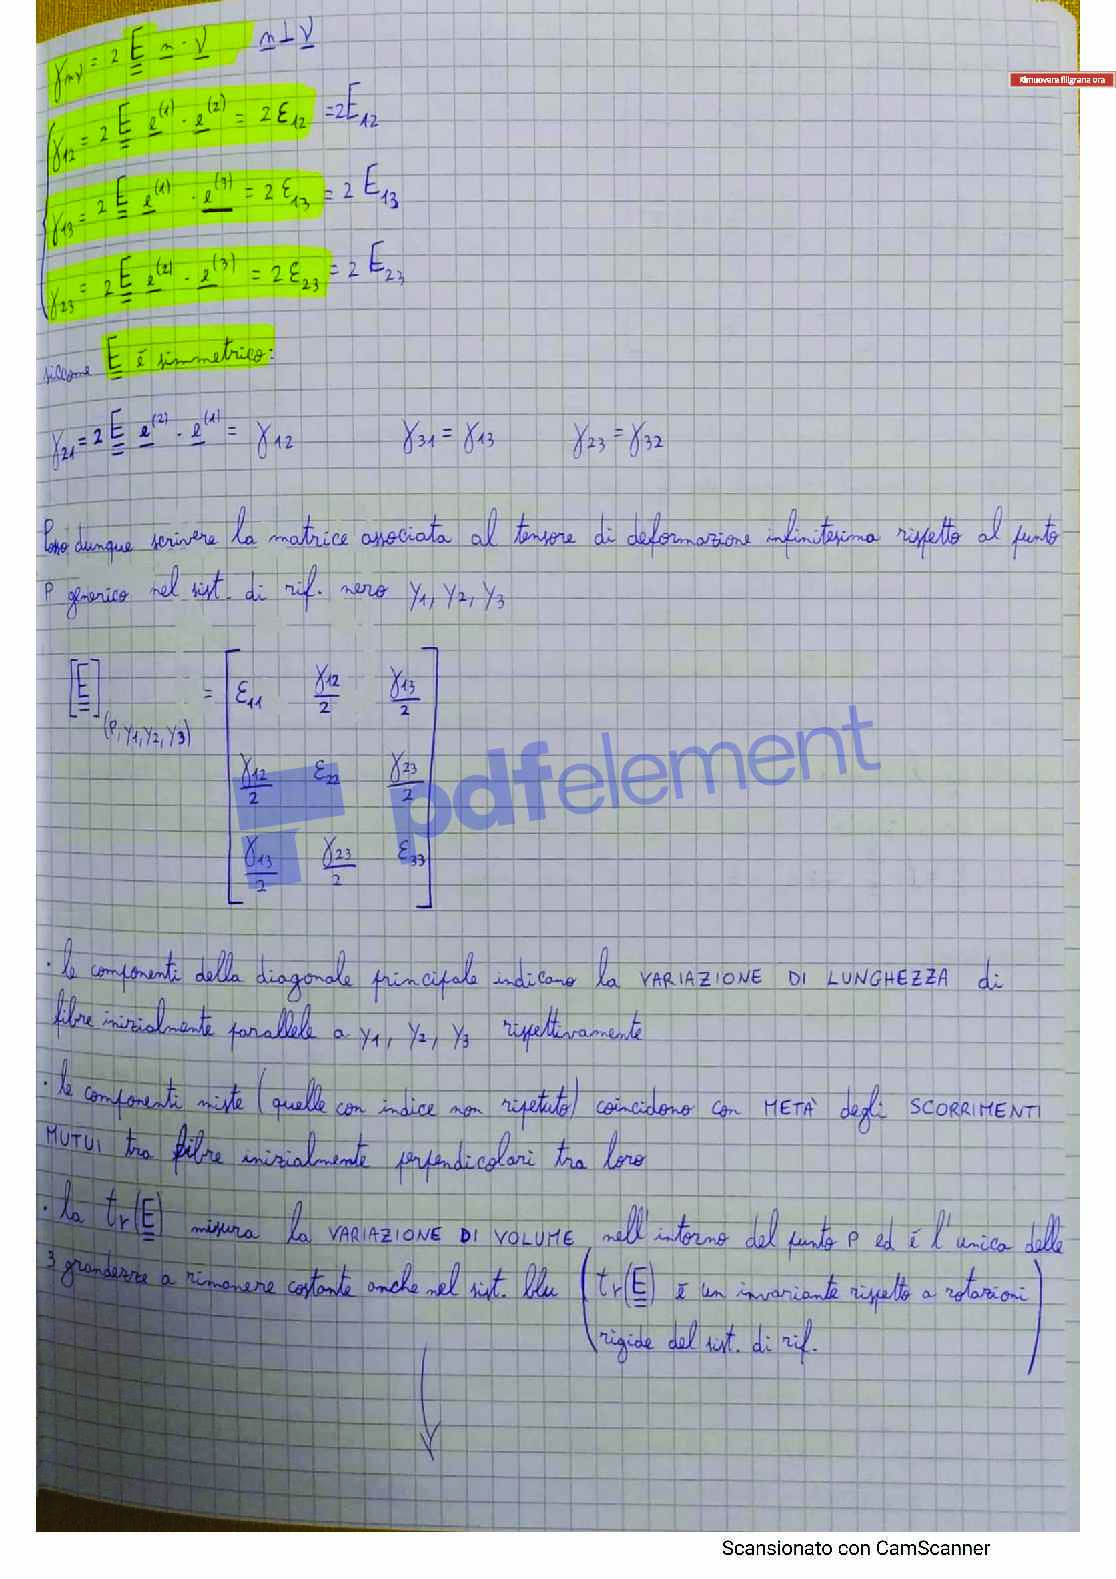 γ_nν = 2 E n · ν    n ⊥ ν
Rimuovere filigrana ora
γ12 = 2 E e^(1) · e^(2) = 2 ε12 = 2E12
γ13 = 2 E e^(1) · e^(3) = 2 ε13 = 2 E13
γ23 = 2 E e^(2) · e^(3) = 2 ε23 = 2 E23
siccome E é simmetrico:
γ21 = 2 E e^(2) · e^(1) = γ12    γ31 = γ13    γ23 = γ32
Posso dunque scrivere la matrice associata al tensore di deformazione infinitesima rispetto al punto
P generico nel sist. di rif. nero y1, y2, y3
[E](P, y1, y2, y3) = [ ε11  γ12/2  γ13/2
γ12/2  ε22  γ23/2
γ13/2  γ23/2  ε33 ]
pdfelement
· le componenti della diagonale principale indicano la VARIAZIONE DI LUNGHEZZA di
fibre inizialmente parallele a y1, y2, y3 rispettivamente
· le componenti miste (quelle con indice non ripetuto) coincidono con METÀ degli SCORRIMENTI
MUTUI tra fibre inizialmente perpendicolari tra loro
· la tr(E) misura la VARIAZIONE DI VOLUME nell'intorno del punto P ed é l'unica delle
3 grandezze a rimanere costante anche nel sist. blu (tr(E) é un invariante rispetto a rotazioni
rigide del sist. di rif.)
Scansionato con CamScanner